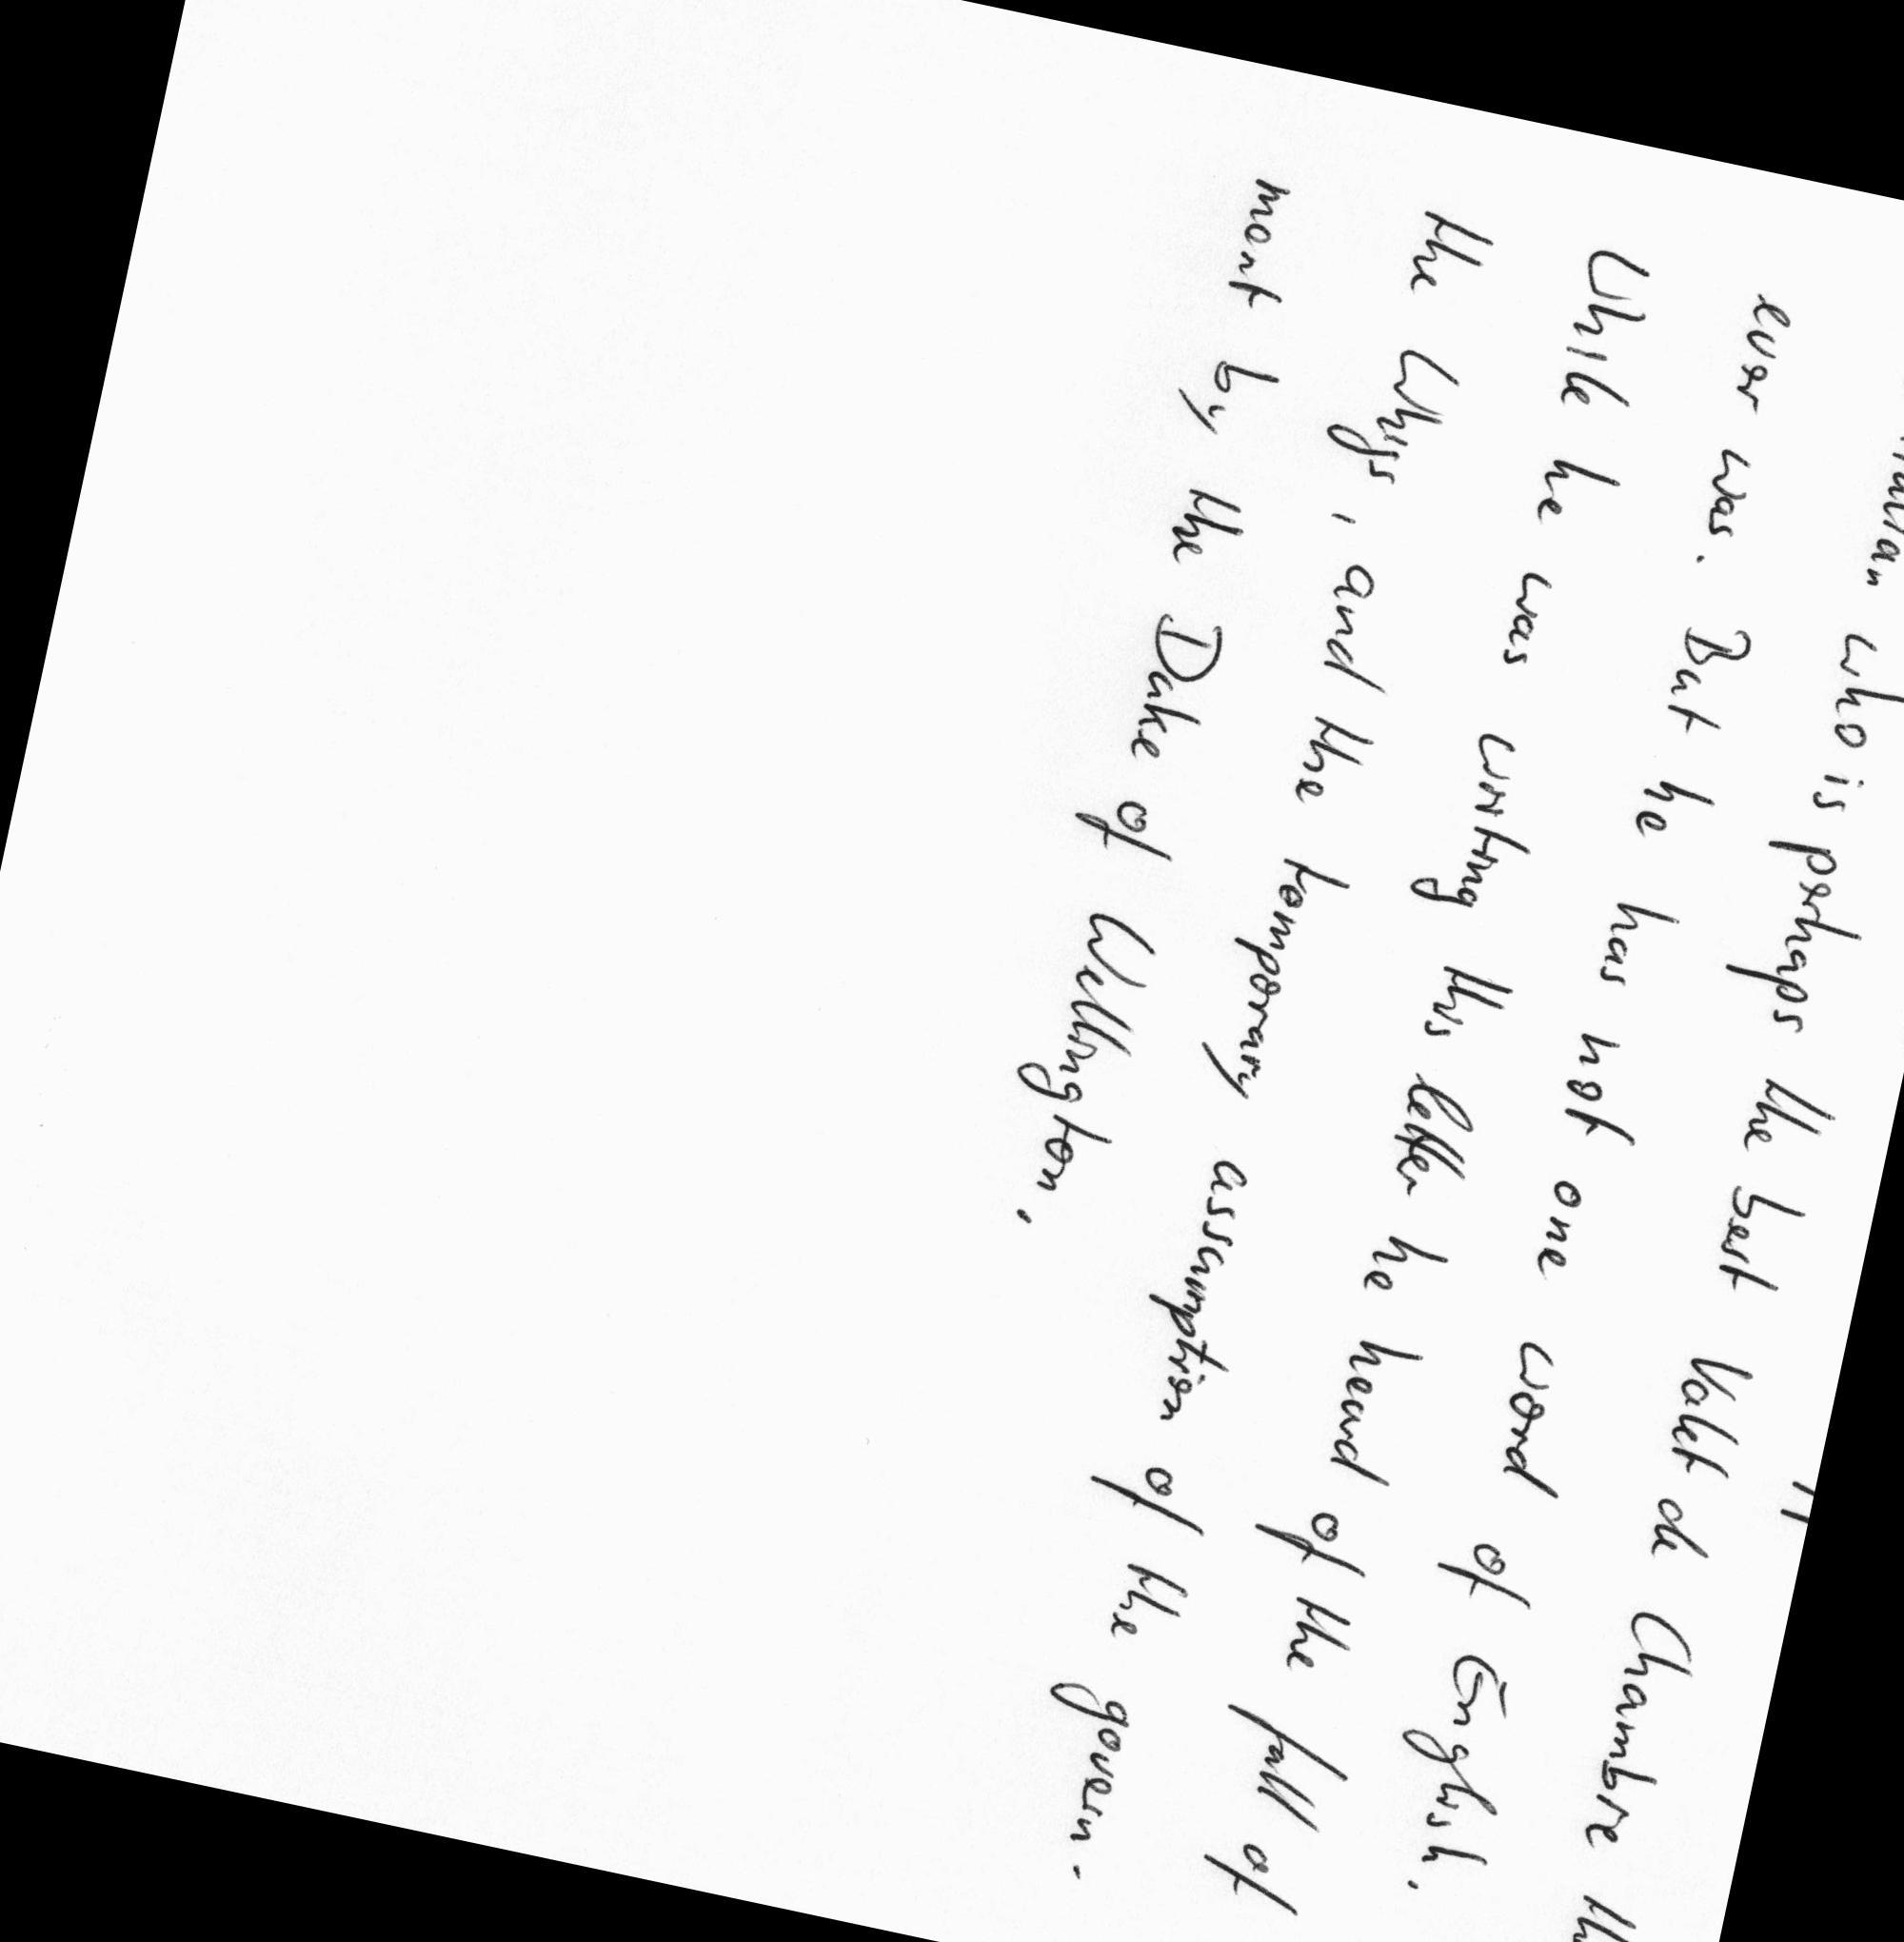 who is perhaps the best Valet de Chambre
ever was. But he has not one word of English.
While he was writing this letter he heard of the fall of
the Whigs, and the temporary assumption of the govern-
ment by the Duke of Wellington,